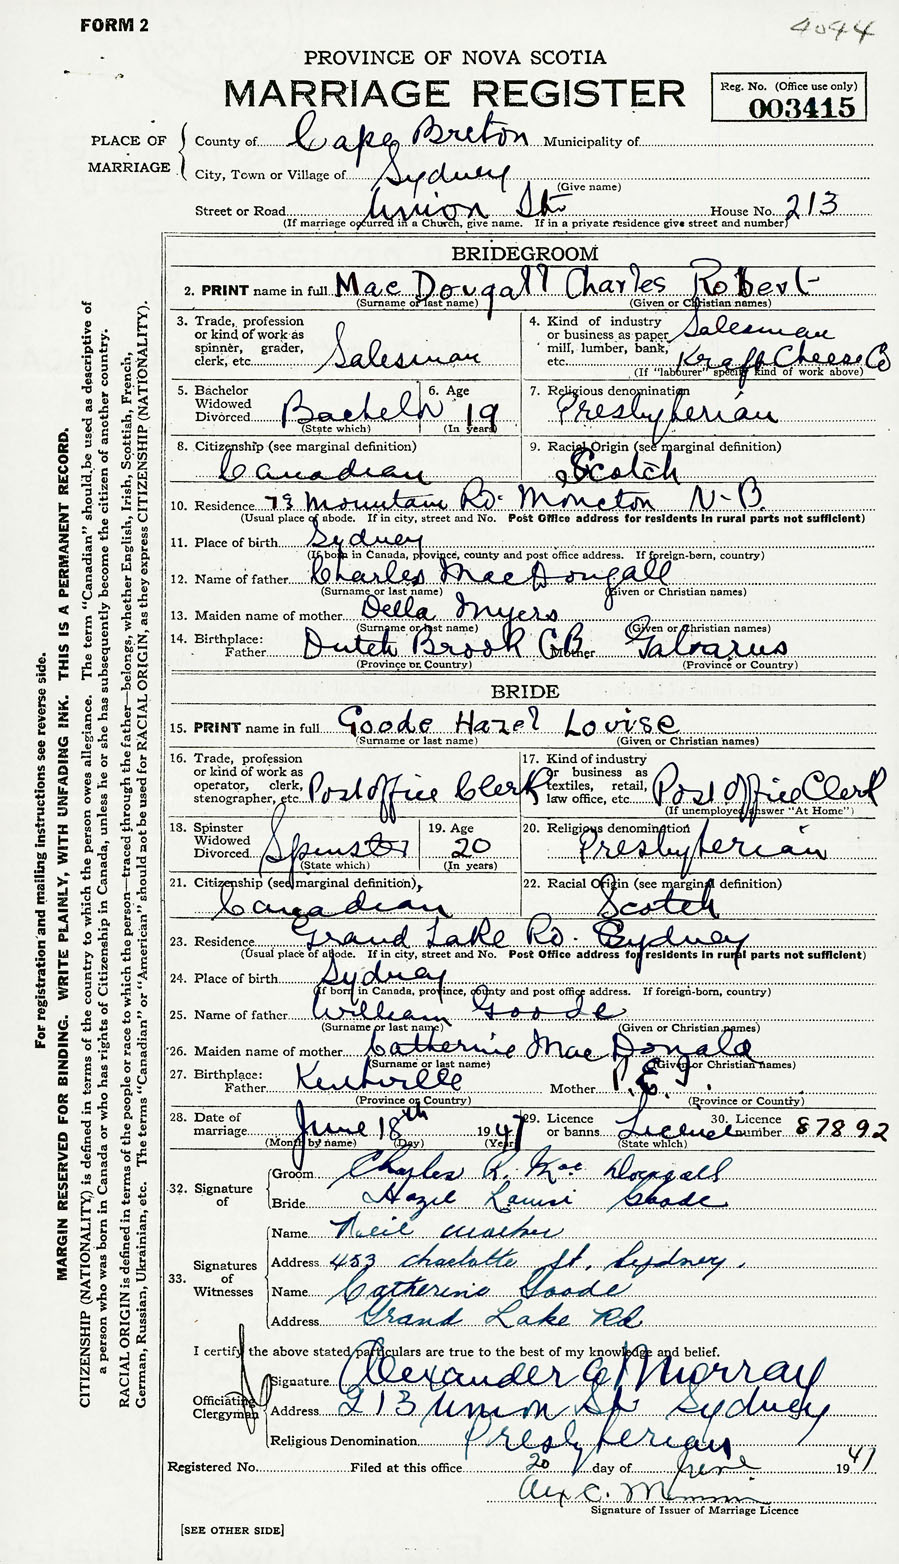 FORM 2
4044
PROVINCE OF NOVA SCOTIA
MARRIAGE REGISTER
Reg. No. (Office use only)
003415
PLACE OF MARRIAGE
County of Cape Breton Municipality of
City, Town or Village of Sydney
(Give name)
Street or Road Union St House No. 213
(If marriage occurred in a Church, give name. If in a private residence give street and number)
BRIDEGROOM
2. PRINT name in full MacDougall Charles Robert
(Surname or last name) (Given or Christian names)
3. Trade, profession or kind of work as spinner, grader, clerk, etc. Salesman
4. Kind of industry or business as paper mill, lumber, bank, etc. Salesman Kraft Cheese Co
(If "labourer" specify kind of work above)
5. Bachelor Widowed Divorced Bachelor
(State which)
6. Age 19
(In years)
7. Religious denomination Presbyterian
8. Citizenship (see marginal definition) Canadian
9. Racial Origin (see marginal definition) Scotch
10. Residence Mountain Rd. Moncton N-B.
(Usual place of abode. If in city, street and No. Post Office address for residents in rural parts not sufficient)
11. Place of birth Sydney
(If born in Canada, province, county and post office address. If foreign-born, country)
12. Name of father Charles MacDougall
(Surname or last name) (Given or Christian names)
13. Maiden name of mother Della Myers
(Surname or last name) (Given or Christian names)
14. Birthplace: Father Dutch Brook CB Mother
(Province or Country) (Province or Country)
BRIDE
15. PRINT name in full Goode Hazel Louise
(Surname or last name) (Given or Christian names)
16. Trade, profession or kind of work as operator, clerk, stenographer, etc. Post office Clerk
17. Kind of industry or business as textiles, retail, law office, etc. Post office Clerk
(If unemployed answer "At Home")
18. Spinster Widowed Divorced Spinster
(State which)
19. Age 20
(In years)
20. Religious denomination Presbyterian
21. Citizenship (see marginal definition) Canadian
22. Racial Origin (see marginal definition) Scotch
23. Residence Grand Lake Rd. Sydney
(Usual place of abode. If in city, street and No. Post Office address for residents in rural parts not sufficient)
24. Place of birth Sydney
(If born in Canada, province, county and post office address. If foreign-born, country)
25. Name of father William Goode
(Surname or last name) (Given or Christian names)
26. Maiden name of mother Catherine MacDonald
(Surname or last name) (Given or Christian names)
27. Birthplace: Father Kentville Mother P.E.I.
(Province or Country) (Province or Country)
28. Date of marriage June 18th 1947
(Month by name) (Day) (Year)
29. Licence or banns License
(State which)
30. Licence number 87892
32. Signature of
Groom Charles R. MacDougall
Bride Hazel Louise Goode
33. Signatures of Witnesses
Name Neil
Address 453 Charlotte St. Sydney.
Name Catherine Goode
Address Grand Lake Rd
I certify the above stated particulars are true to the best of my knowledge and belief.
Officiating Clergyman
Signature Alexander C Murray
Address 213 Union St Sydney
Religious Denomination Presbyterian
Registered No. Filed at this office 20 day of June 1947
Alex C.
Signature of Issuer of Marriage Licence
[SEE OTHER SIDE]
For registration and mailing instructions see reverse side.
MARGIN RESERVED FOR BINDING. WRITE PLAINLY, WITH UNFADING INK. THIS IS A PERMANENT RECORD.
CITIZENSHIP (NATIONALITY,) is defined in terms of the country to which the person owes allegiance. The term "Canadian" should be used as descriptive of
a person who was born in Canada or who has rights of Citizenship in Canada, unless he or she has subsequently become the citizen of another country.
RACIAL ORIGIN is defined in terms of the people or race to which the person—traced through the father—belongs, whether English, Irish, Scottish, French,
German, Russian, Ukrainian, etc. The terms "Canadian" or "American" should not be used for RACIAL ORIGIN, as they express CITIZENSHIP (NATIONALITY).